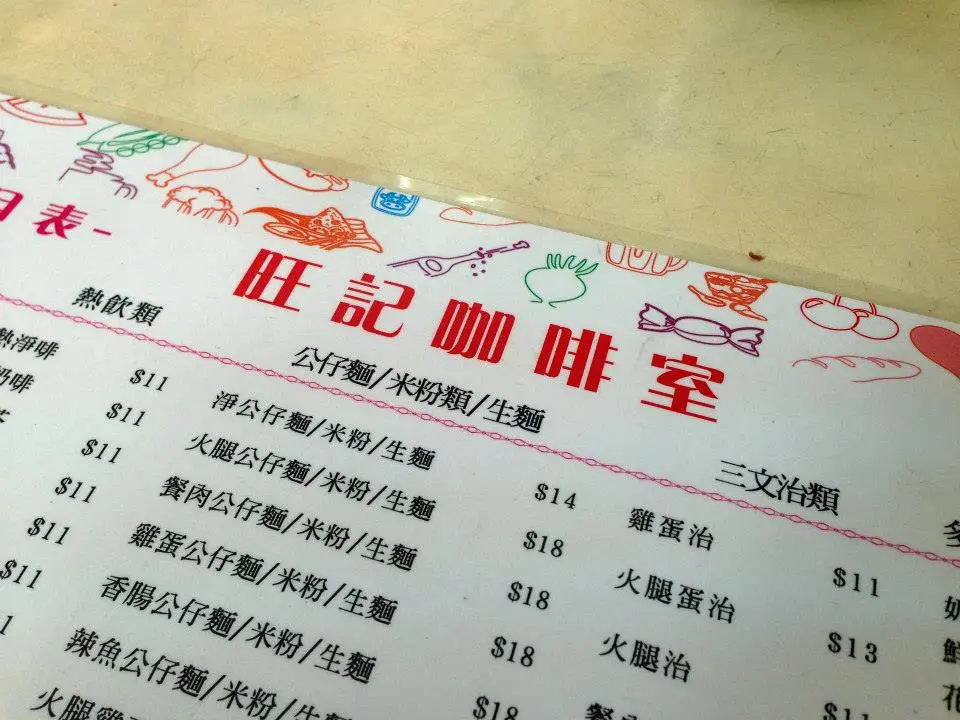 目表-
旺記咖啡室
熱飲類
熱淨啡
$11
奶啡
$11
$11
$11
$11
$11
公仔麵/米粉類/生麵
淨公仔麵/米粉/生麵
$14
火腿公仔麵/米粉/生麵
$18
餐肉公仔麵/米粉/生麵
$18
雞蛋公仔麵/米粉/生麵
$18
香腸公仔麵/米粉/生麵
$18
辣魚公仔麵/米粉/生麵
火腿雞
三文治類
雞蛋治
$11
火腿蛋治
$13
火腿治
$11
餐肉
多
奶
鮮
花